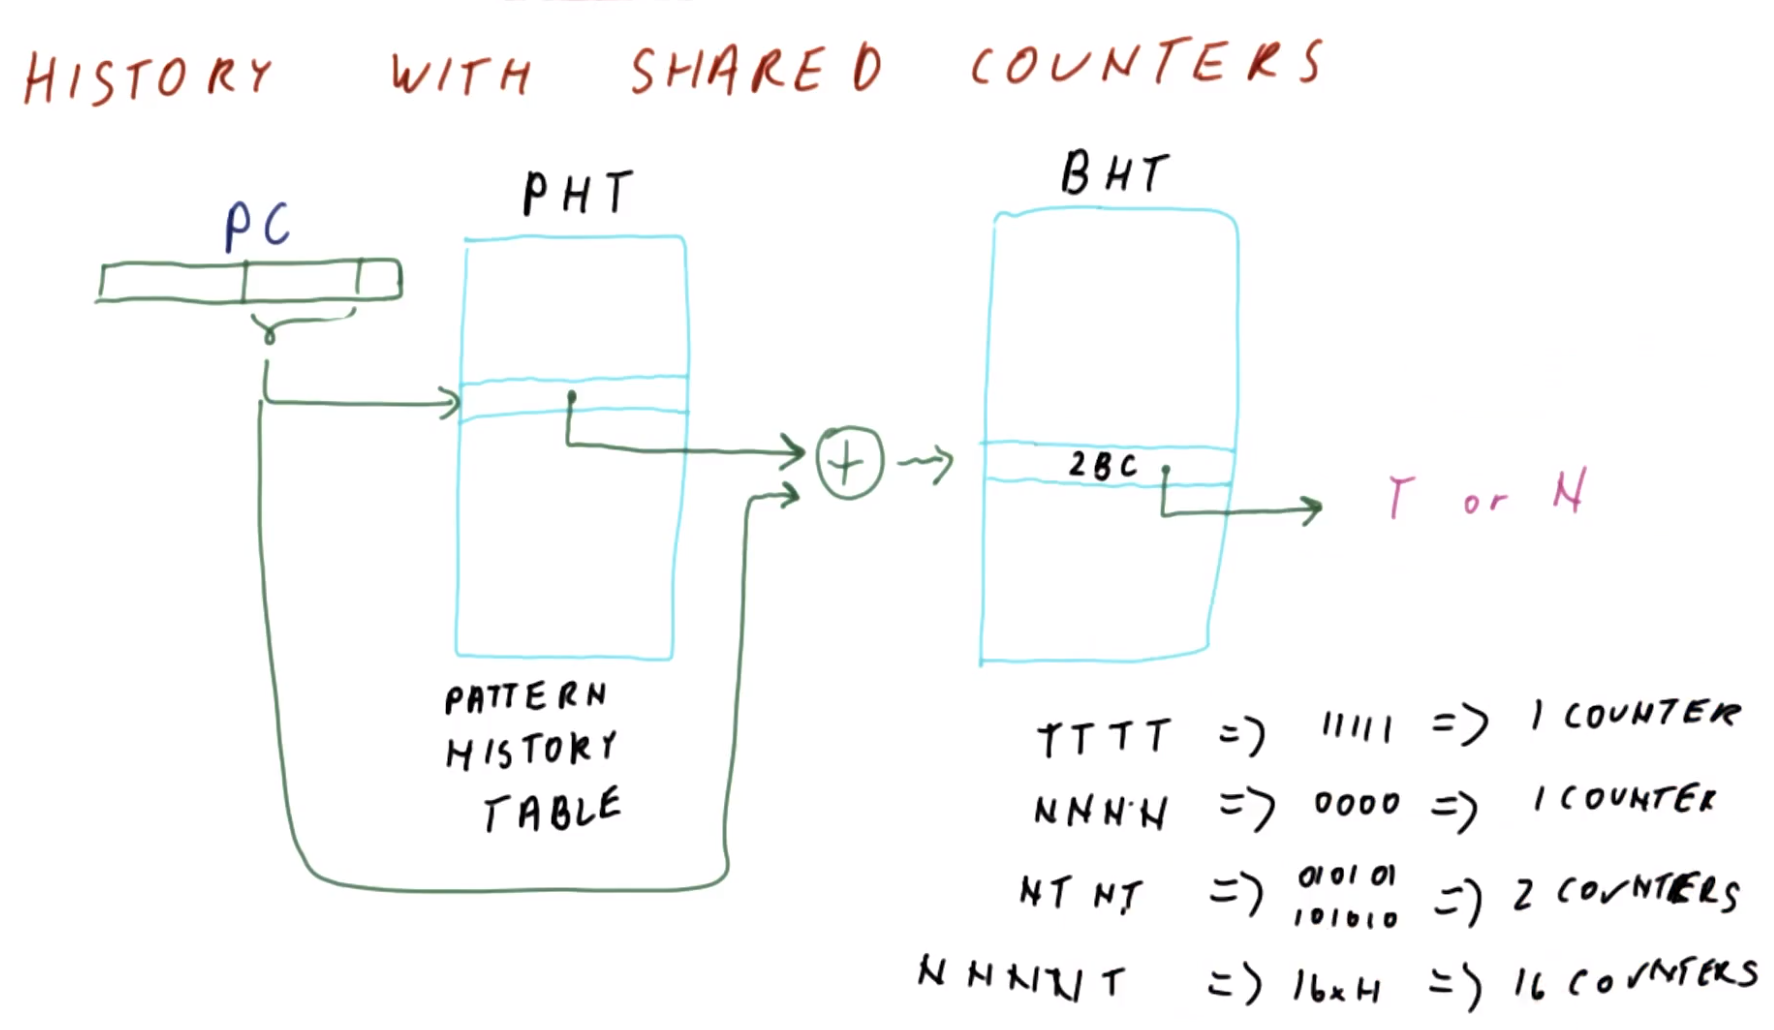 HISTORY WITH SHARED COUNTERS
PC
PHT
BHT
2BC
T or N
PATTERN
HISTORY
TABLE
TTTT => 11111 => 1 COUNTER
NNNN => 0000 => 1 COUNTER
NTNT => 010101
101010 => 2 COUNTERS
NNNNT => 16xH => 16 COUNTERS